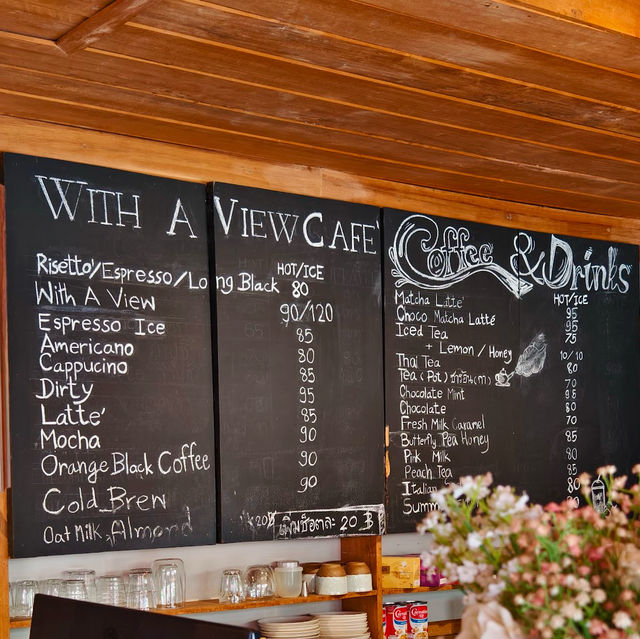 WITH A VIEW CAFE
HOT/ICE
Risetto/Espresso/Long Black 80
With A View 90/120
Espresso Ice 85
Americano 80
Cappucino 85
Dirty 95
Latte' 85
Mocha 90
Orange Black Coffee 90
Cold Brew 90
Oat Milk, Almond
20 ฿
Coffee & Drinks
HOT/ICE
Matcha Latte' 95
Choco Matcha Latté 95
Iced Tea 75
+ Lemon / Honey 10/10
Thai Tea 80
Tea (Pot) 70
Chocolate Mint
Chocolate 80
Fresh Milk Caramel 70
Butterfly Pea Honey 85
Pink Milk 80
Peach Tea 85
Italian 80
Summ